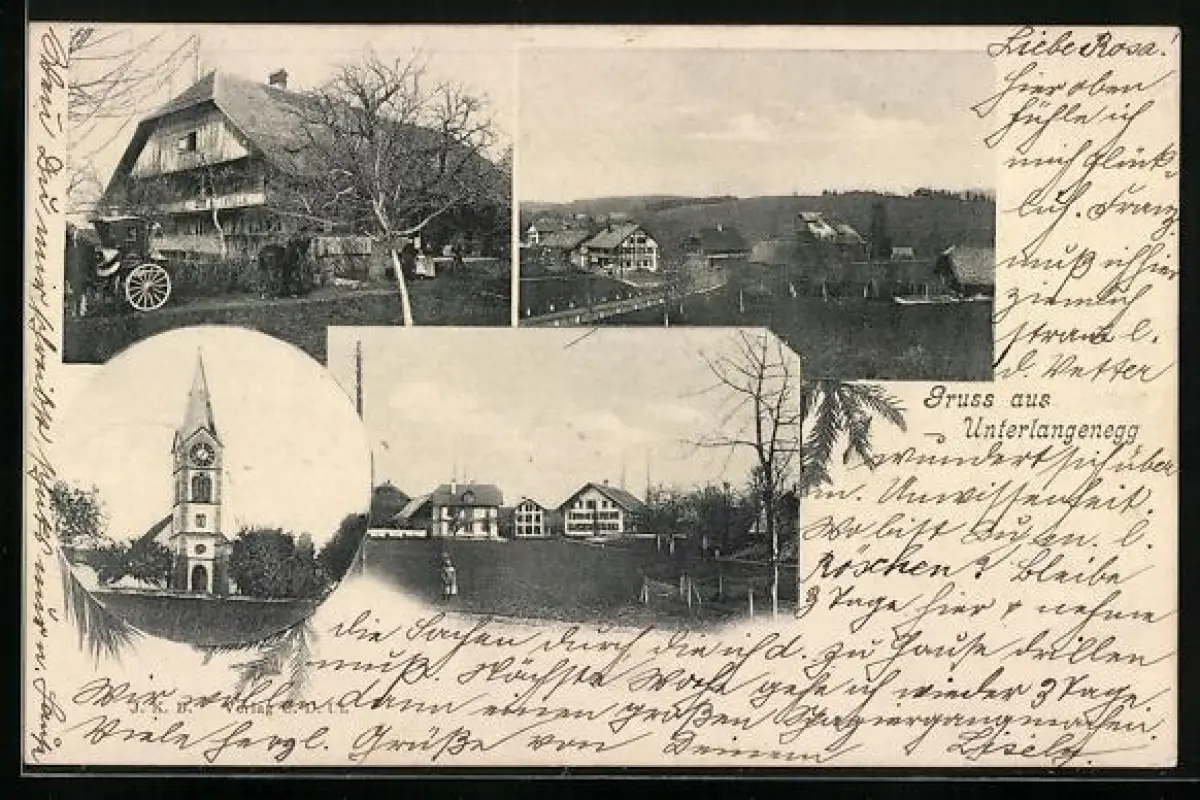 Liebe Rosa!
Hier oben
fühle ich
mich glück-
lich. Franz
muß ich hier
ziemlich
stramm l.
d. Vetter
Gruss aus
Unterlangenegg
wundert sich über
m. Unwissenheit.
Wo bist Du m. l.
Röschen? Bleibe
3 Tage hier & nehme
die Sachen durch die ich d. zu Hause drillen
muß. Nächste Woche gehe ich wieder 3 Tage.
Wir wollen dann einen großen Spaziergang machen.
J. K. B. Verlag
Viele herzl. Grüße von Deinem Lisely
Du mir schreibst